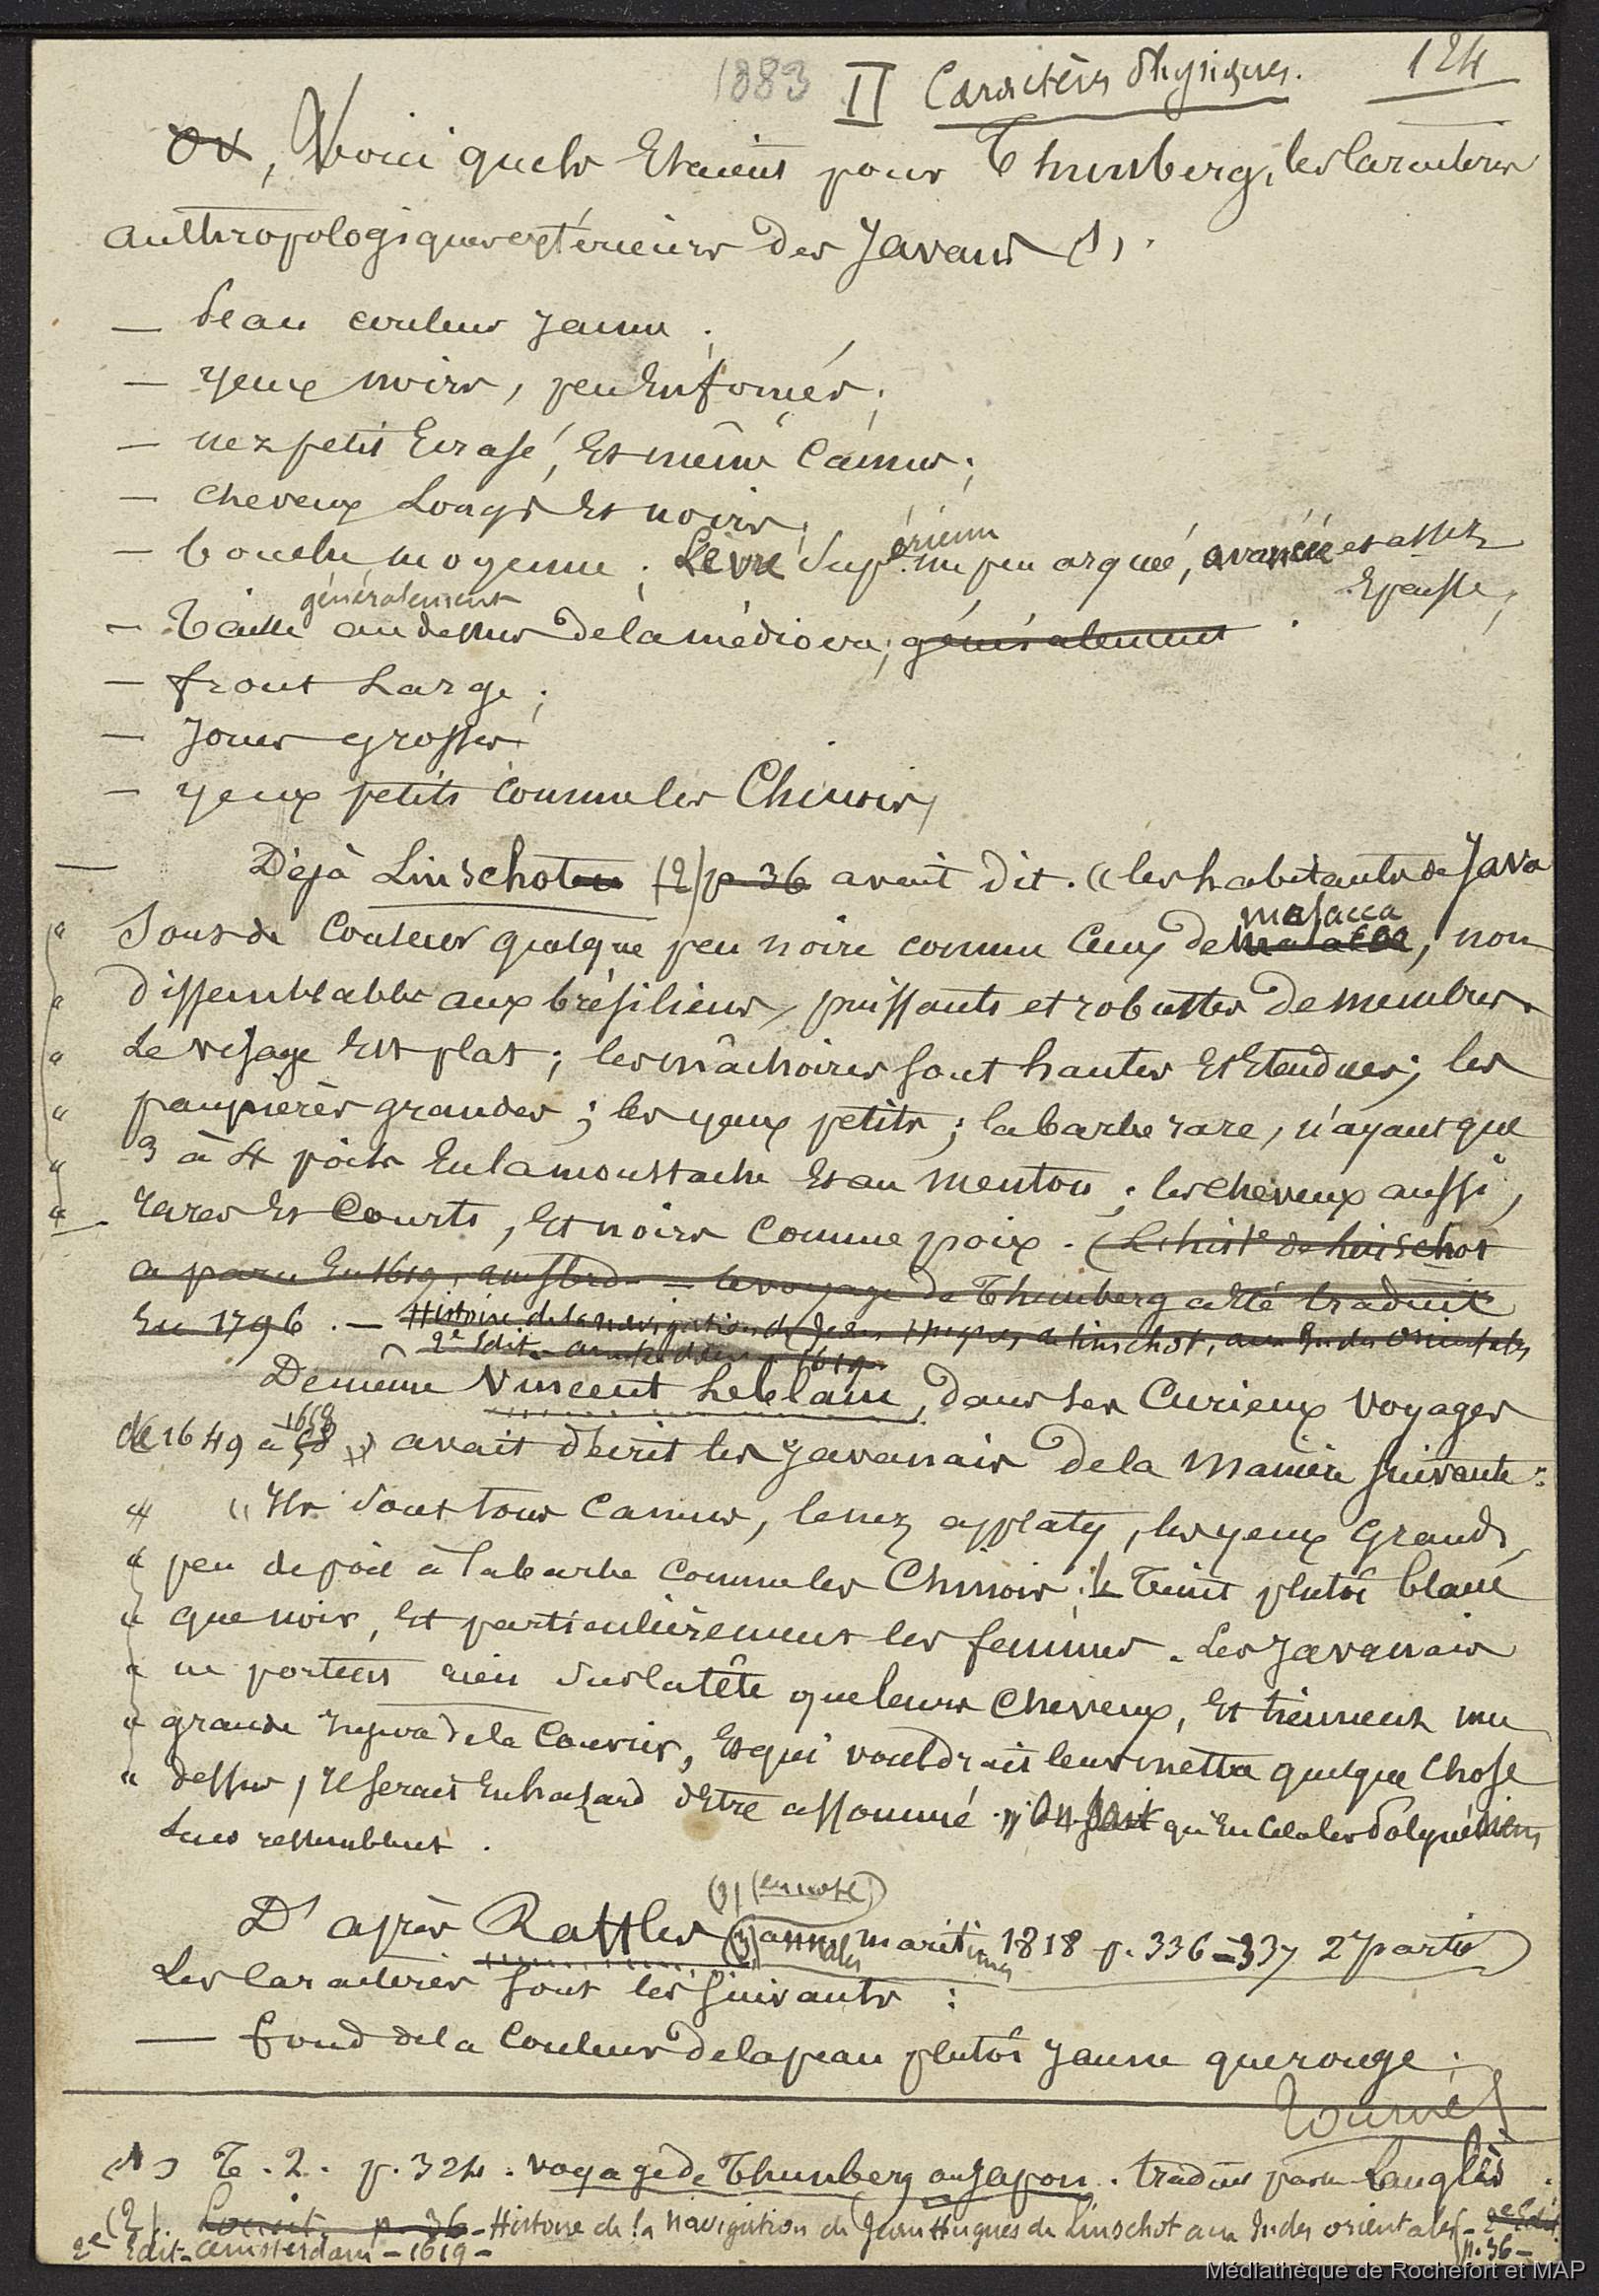 1883 II Caractères physiques. 124
Or, Voici quels Etaient pour Thunberg, les Caractères
anthropologiques extérieurs des Javans (1).
— Peau couleur jaune ;
— yeux noirs, peu Enfoncés ;
— nez petit Ecrasé, Et même Camus ;
— cheveux Longs Et noirs ;
— bouche moyenne ; Lèvre supérieure un peu arquée, avancée et assez
Epaisse ;
généralement
— Taille au dessus de la médiocre ; généralement .
— front Large ;
— Joues grosses
— yeux petits comme les Chinois,
— Déjà Linschoten (2) p. 36 avait dit. « les habitants de Java
" Sont de Couleur quelque peu noire comme Ceux de malacca, non
" dissemblables aux brésiliens, puissants et robustes de membres.
" Le visage Est plat ; les mâchoires sont hautes Et Etendues ; les
" paupières grandes ; les yeux petits ; la barbe rare, n'ayant que
" 3 à 4 poils En la moustache Et au menton ; les cheveux aussi,
" rares Et Courts, Et noirs Comme poix. (L'histre de Linschot
a paru En 1619, amsterd. — le voyage de Thunberg a été traduit
En 1796. — Histoire de la navigation de Jean Hugues de linschot, aux Indes orientales
2e Edit. amsterdam, 1619.
De même Vincent Leblanc, dans ses Curieux voyages
de 1649 à 1658 avait décrit les Javanais de la Manière suivante :
" « Ils sont tous Camus, le nez applaty, les yeux Grands,
" peu de poil à la barbe comme les Chinois ; le Teint plutôt blanc
" que noir, Et particulièrement les femmes. Les Javanais
" ne portent rien sur la tête que leurs Cheveux, Et tiennent une
" grande injure de la Couvrir, Et qui vouldrait leur mettre quelque Chose
" dessus, Il serait En hazard d'Etre assommé. » On sait qu'En Cela les Polynésiens
leur ressemblent.
(3) (en note)
D'après Raffles (3) annales maritimes 1818 p. 336-337 2e partie)
Les Caractères sont les suivants :
— fond de la Couleur de la peau plutôt jaune que rouge ;
Tournez
(1) T. 2. p. 324. voyage de Thunberg au Japon. traduit par Langlès.
(2). Loc. cit. p. 36 - Histoire de la navigation de Jean Hugues de Linschot aux Indes orientales - 2e Edit.
2e Edit - amsterdam - 1619 - p. 36 -
Médiathèque de Rochefort et MAP